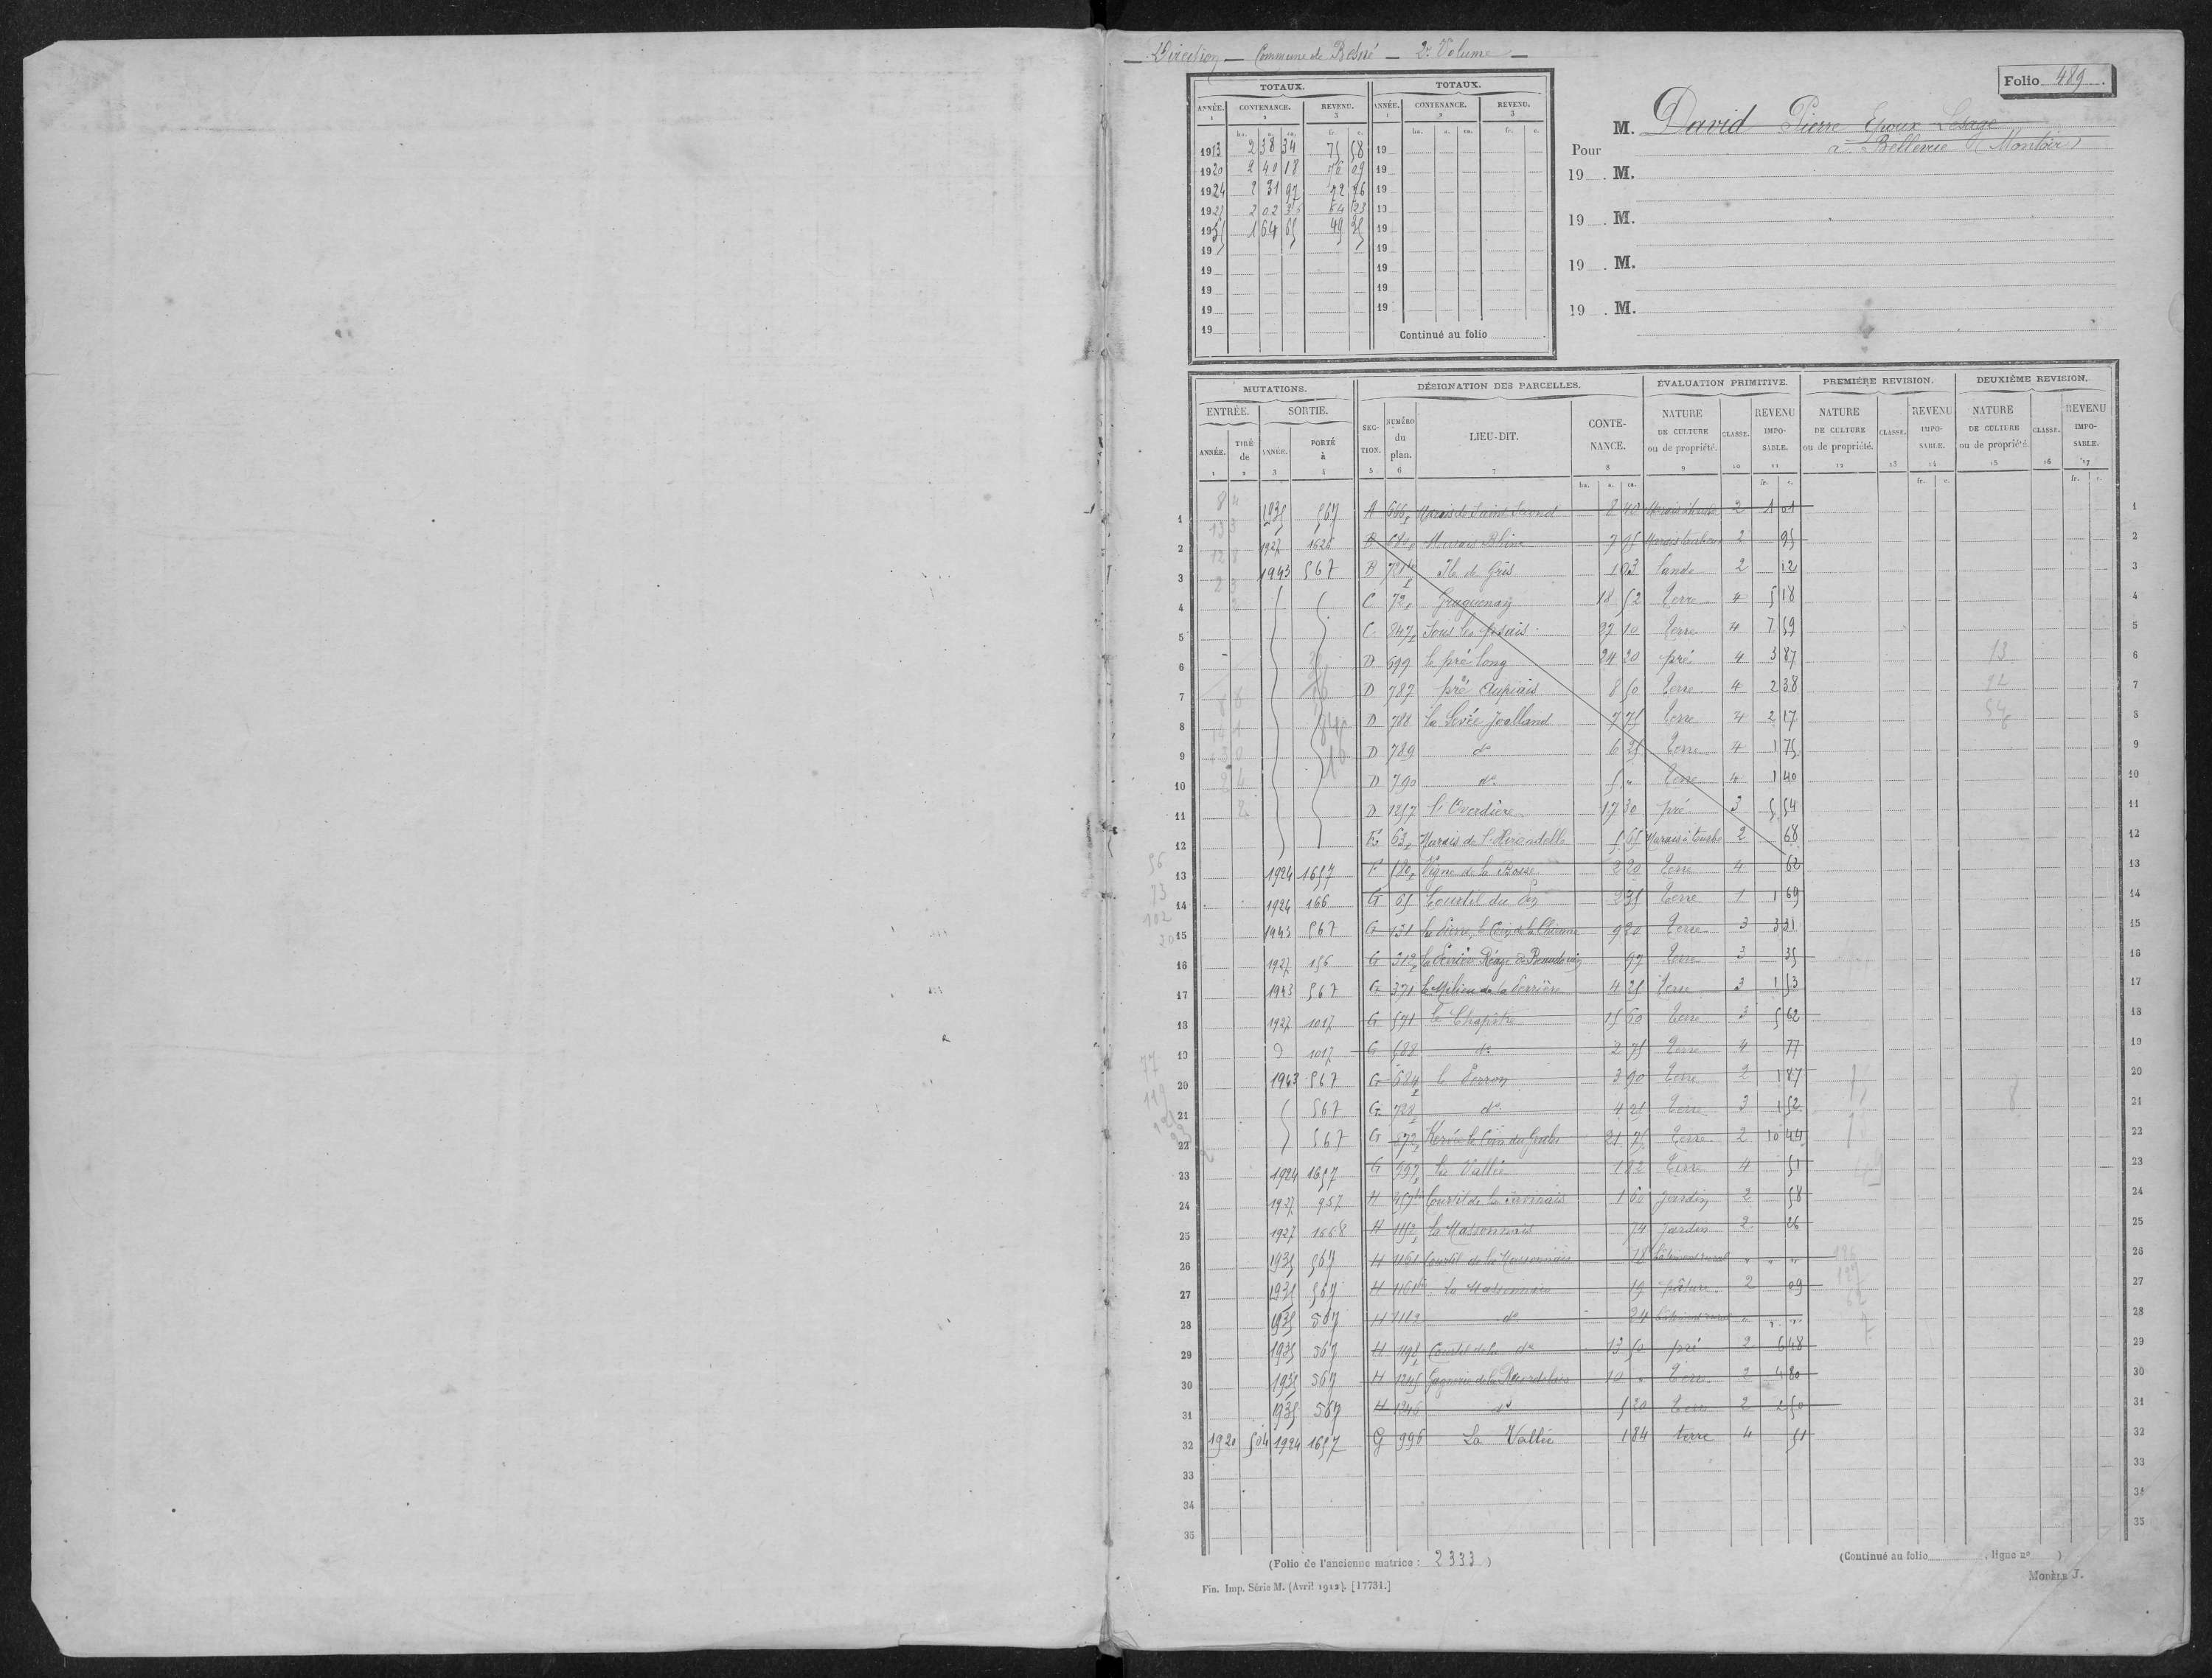 Direction — Commune de Besné — 2e Volume —
Folio 489.
TOTAUX. TOTAUX.
ANNÉE. CONTENANCE. REVENU. ANNÉE. CONTENANCE. REVENU.
1 2 3 1 2 3
ha. a. ca. fr. c. ha. a. ca. fr. c.
1913 2 38 34 75 58 19
1920 2 40 18 76 09 19
1924 2 31 97 72 76 19
1927 2 02 36 64 23 19
1935 1 64 65 49 35 19
19 19
19 19
19 19
19 19
19
Continué au folio
M. David Pierre Epoux Lesage
Pour à Bellevue (Montoir)
19 . M.
19 . M.
19 . M.
19 . M.
MUTATIONS. DÉSIGNATION DES PARCELLES. ÉVALUATION PRIMITIVE. PREMIÈRE REVISION. DEUXIÈME REVISION.
ENTRÉE. SORTIE. SECTION. NUMÉRO du plan. LIEU-DIT. CONTENANCE. NATURE DE CULTURE ou de propriété. CLASSE. REVENU IMPOSABLE. NATURE DE CULTURE ou de propriété. CLASSE. REVENU IMPOSABLE. NATURE DE CULTURE ou de propriété. CLASSE. REVENU IMPOSABLE.
ANNÉE. TIRÉ de ANNÉE. PORTÉ à
1 2 3 4 5 6 7 8 9 10 11 12 13 14 15 16 17
ha. a. ca. fr. c. fr. c. fr. c.
1 1935 567 A 666p Marais de Saint Second 8 40 2 1 01 1
2 1927 1626 B 680p Marais Blin 7 95 Marais tourbeux 2 95 2
3 1943 567 B 721 Ile de Gris 1 03 lande 2 12 3
4 C 72p Graguenay 18 52 terre 4 5 18 4
5 C 847p Sous les 27 10 terre 4 7 59 5
6 D 699 le pré long 24 20 pré 4 3 87 6
7 D 787 pré Aupiais 8 50 terre 4 2 38 7
8 D 788 la Levée Joalland 7 75 terre 4 2 17 8
9 D 789 do 6 25 terre 4 1 75 9
10 D 790 do 5 " terre 4 1 40 10
11 D 1257 l'Overdière 17 30 pré 3 5 54 11
12 E 63p Marais de l'Hirondelle 5 65 Marais à tourbe 2 68 12
13 1924 1657 F 180p Vigne de la Bosse 2 20 terre 4 62 13
14 1924 166 G 65 Courtil du 2 35 terre 1 1 69 14
15 1943 567 G 131 9 20 terre 3 3 31 15
16 1927 156 G 312p 97 terre 3 35 16
17 1943 567 G 371 le Milieu de la Perrière 4 25 terre 3 1 53 17
18 1927 1017 G 571 le Chapitre 15 60 terre 3 5 62 18
19 1017 G 688 do 2 75 terre 4 77 19
20 1943 567 G 684 le Perron 3 90 terre 2 1 87 20
21 567 G 728 do 4 21 terre 3 1 52 21
22 567 G 872p 21 75 terre 2 10 44 22
23 1924 1657 G 997p La Vallée 1 82 terre 4 51 23
24 1927 957 H Courtil de la 1 60 jardin 2 58 24
25 1927 1668 H 1152p la Massonnais 74 jardin 2 26 25
26 1935 567 H 1161 Courtil de la Massonnais 18 bâtiment rural " " " 26
27 1935 567 H 1161 La Massonnais 19 pâture 2 09 27
28 1935 567 H 1162 do 24 bâtiment rural " " " 28
29 1935 567 H 1195 Courtil de la do 13 50 pré 2 6 48 29
30 1935 567 H 1245 10 " terre 2 4 80 30
31 1935 567 H 1246 do 5 20 terre 2 2 50 31
32 1920 504 1924 1657 G 996 La Vallée 1 84 terre 4 51 32
33 33
34 34
35 35
(Folio de l'ancienne matrice : 2333 )
(Continué au folio , ligne no )
Fin. Imp. Série M. (Avril 1912). [17731.]
MODÈLE J.